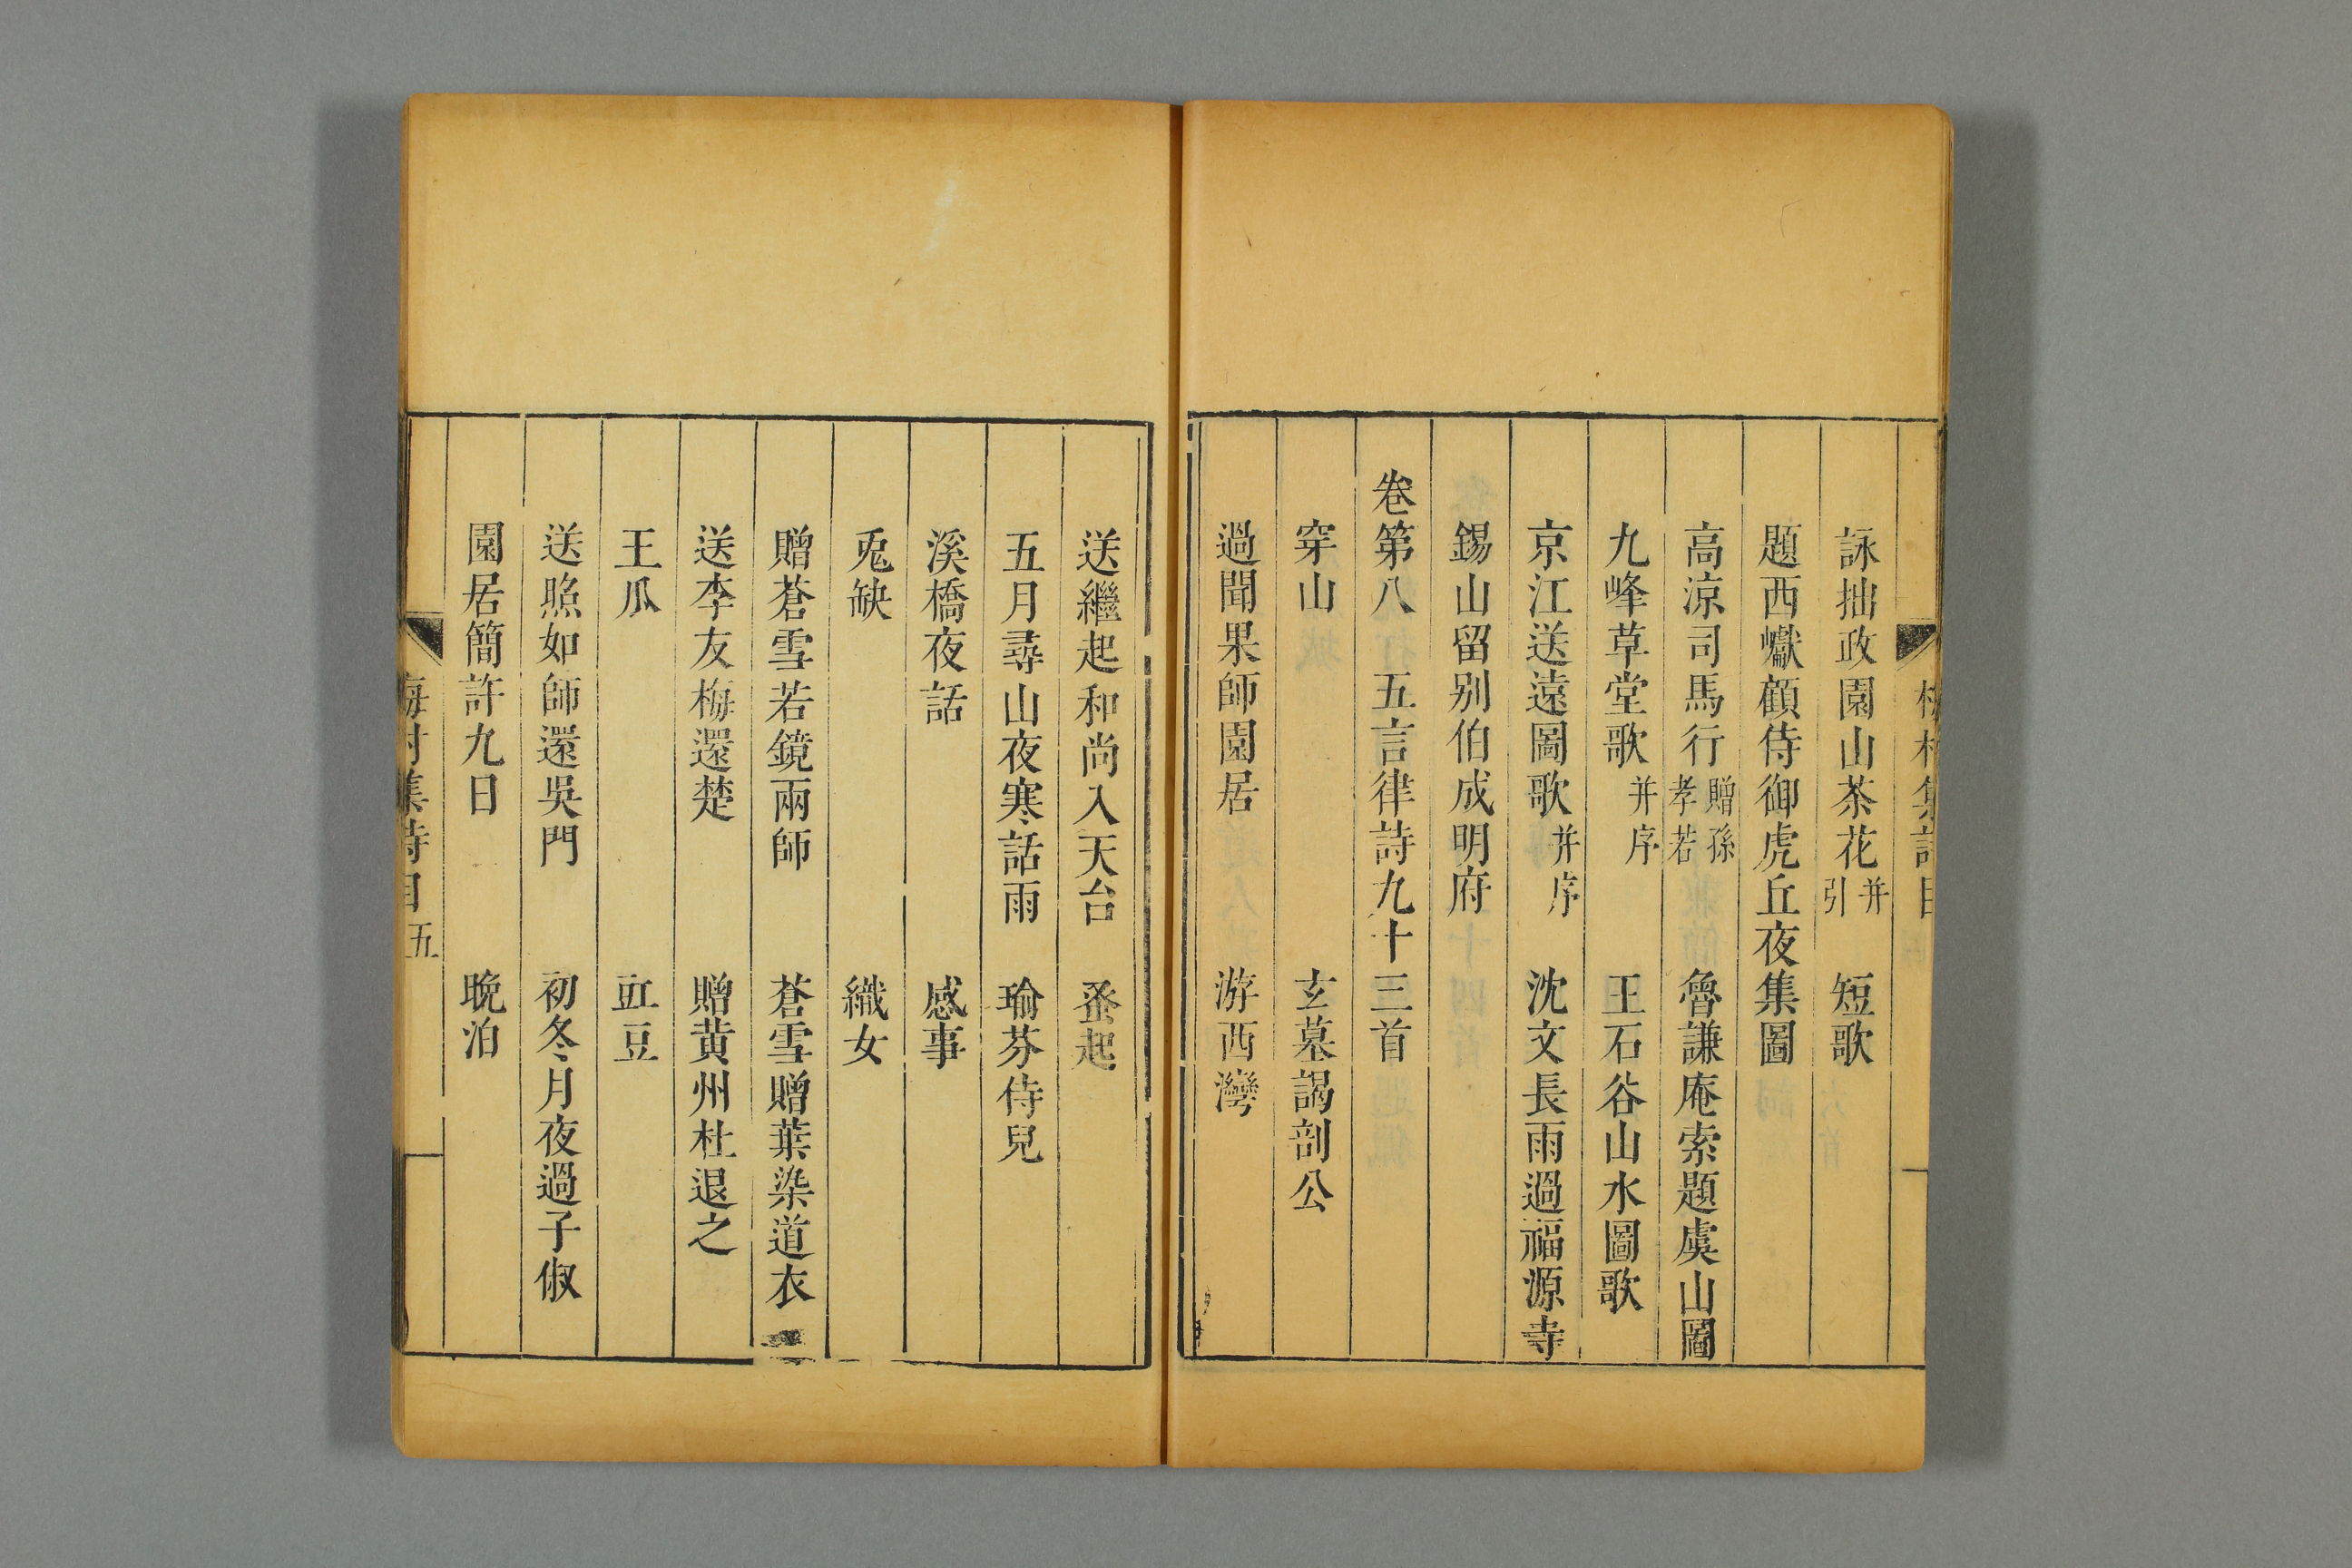 詠拙政園山茶花并引　短歌
題西巘顧侍御虎丘夜集圖
高涼司馬行贈孫孝若　魯謙庵索題虞山圖
九峰草堂歌并序　王石谷山水圖歌
京江送遠圖歌并序　沈文長雨過福源寺
錫山留别伯成明府
卷第八　五言律詩九十三首
穿山　玄墓謁剖公
過聞果師園居　游西灣
送繼起和尚入天台　蚤起
五月尋山夜寒話雨　瑜芬侍兒
溪橋夜話　感事
兎缺　織女
贈蒼雪若鏡兩師　蒼雪贈葉染道衣
送李友梅還楚　贈黄州杜退之
王瓜　豇豆
送照如師還吳門　初冬月夜過子俶
園居簡許九日　晚泊
梅村集詩目　五